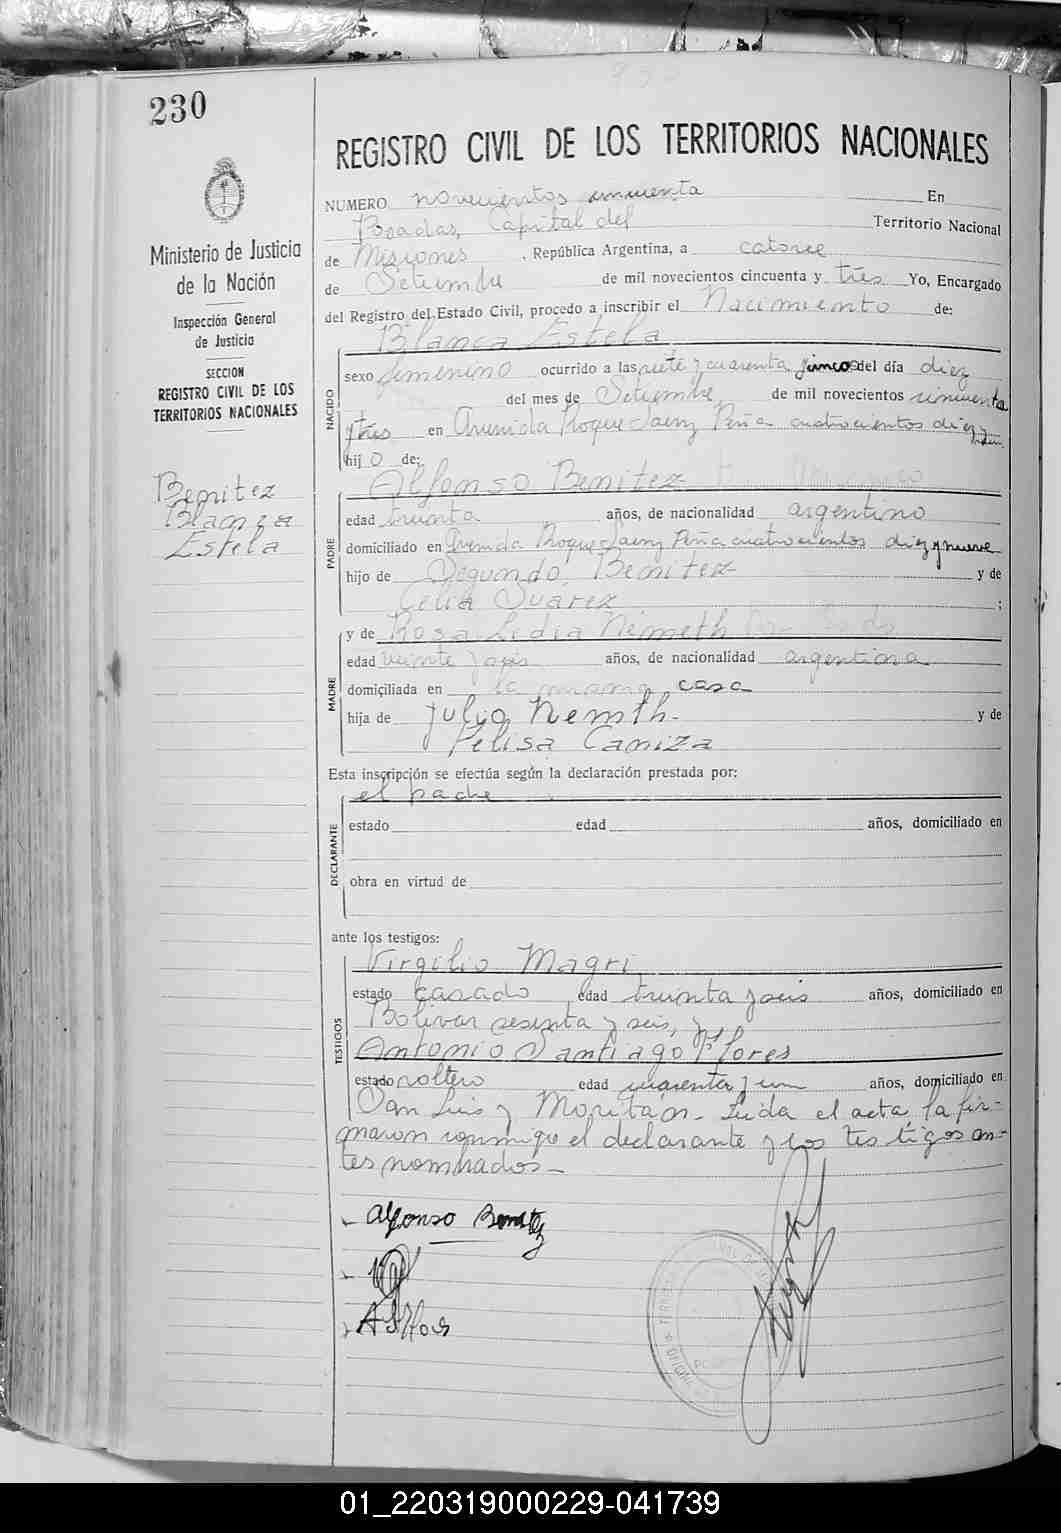 230
REGISTRO CIVIL DE LOS TERRITORIOS NACIONALES
Ministerio de Justicia
de la Nación
Inspección General
de Justicia
SECCION
REGISTRO CIVIL DE LOS
TERRITORIOS NACIONALES
Benitez
Blanca
Estela
NUMERO novecientos cincuenta En
Posadas, Capital del Territorio Nacional
de Misiones, República Argentina, a catorce
de Setiembre de mil novecientos cincuenta y tres Yo, Encargado
del Registro del Estado Civil, procedo a inscribir el Nacimiento de:
Blanca Estela
NACIDO
sexo femenino ocurrido a las siete y cuarenta y cinco del día diez
del mes de Setiembre de mil novecientos cincuenta
y tres en Avenida Roque Saenz Peña cuatrocientos diez y
hijo de:
Alfonso Benitez
PADRE
edad treinta años, de nacionalidad argentino
domiciliado en Avenida Roque Saenz Peña cuatrocientos diez y nueve
hijo de Segundo Benitez y de
Celia Suarez ;
y de Rosa Lidia Nemeth
MADRE
edad veinte y seis años, de nacionalidad argentina
domiciliada en la misma casa
hija de Julio Nemth. y de
Felisa Caniza
Esta inscripción se efectúa según la declaración prestada por:
el padre
DECLARANTE
estado edad años, domiciliado en
obra en virtud de
ante los testigos:
Virgilio Magri
TESTIGOS
estado casado edad treinta y seis años, domiciliado en
Bolivar sesenta y seis, y
Antonio Santiago Flores
estado soltero edad cuarenta y un años, domiciliado en
San Luis y Moritán. Leida el acta la fir-
maron conmigo el declarante y los testigos an-
tes nombrados.
Alfonso Benitez
01_220319000229-041739